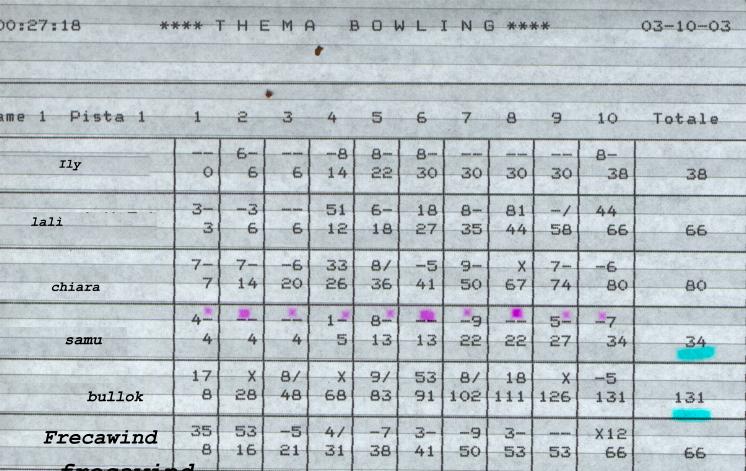 00:27:18 **** T H E M A B O W L I N G **** 03-10-03
ame 1 Pista 1 1 2 3 4 5 6 7 8 9 10 Totale
-- 6- -- -8 8- 8- -- -- -- 8-
Ily 0 6 6 14 22 30 30 30 30 38 38
3- -3 -- 51 6- 18 8- 81 -/ 44
lali 3 6 6 12 18 27 35 44 58 66 66
7- 7- -6 33 8/ -5 9- X 7- -6
chiara 7 14 20 26 36 41 50 67 74 80 80
4- -- -- 1- 8- -- -9 -- 5- -7
samu 4 4 4 5 13 13 22 22 27 34 34
17 X 8/ X 9/ 53 8/ 18 X -5
bullok 8 28 48 68 83 91 102 111 126 131 131
35 53 -5 4/ -7 3- -9 3- -- X12
Frecawind 8 16 21 31 38 41 50 53 53 66 66
frecawind